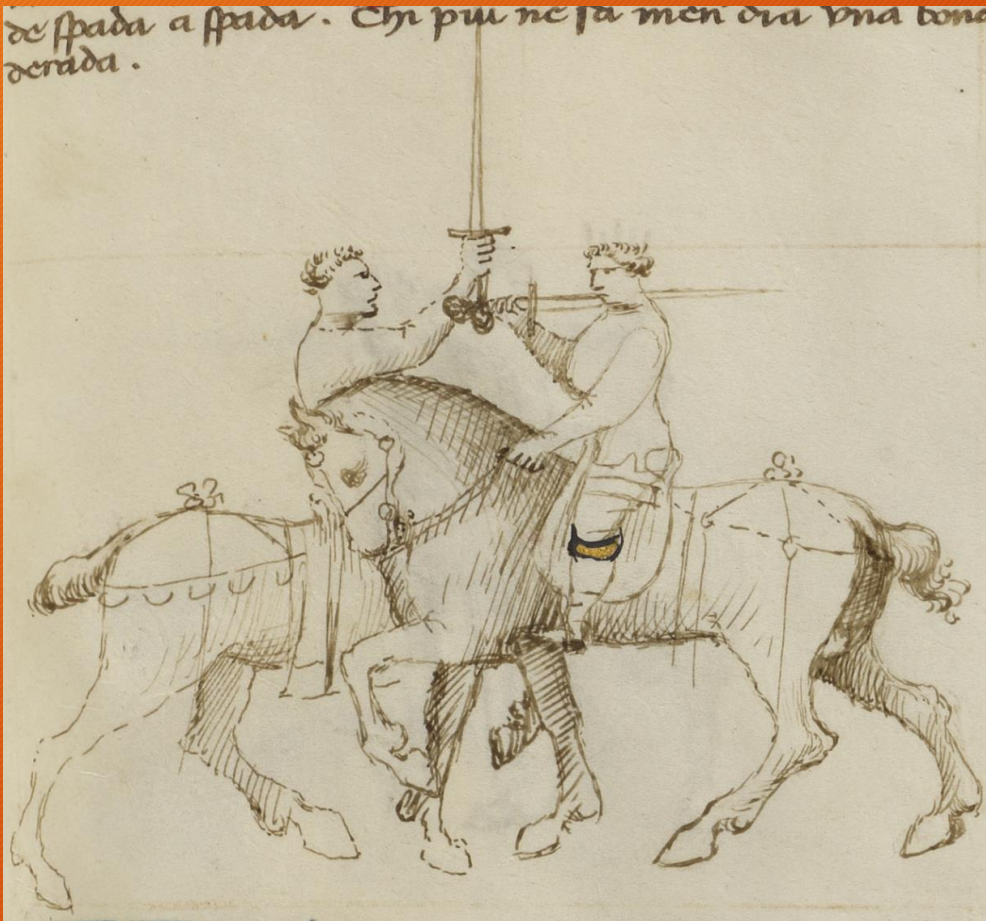 de spada a spada. Chi piu ne sa men dia vna bona
derada.